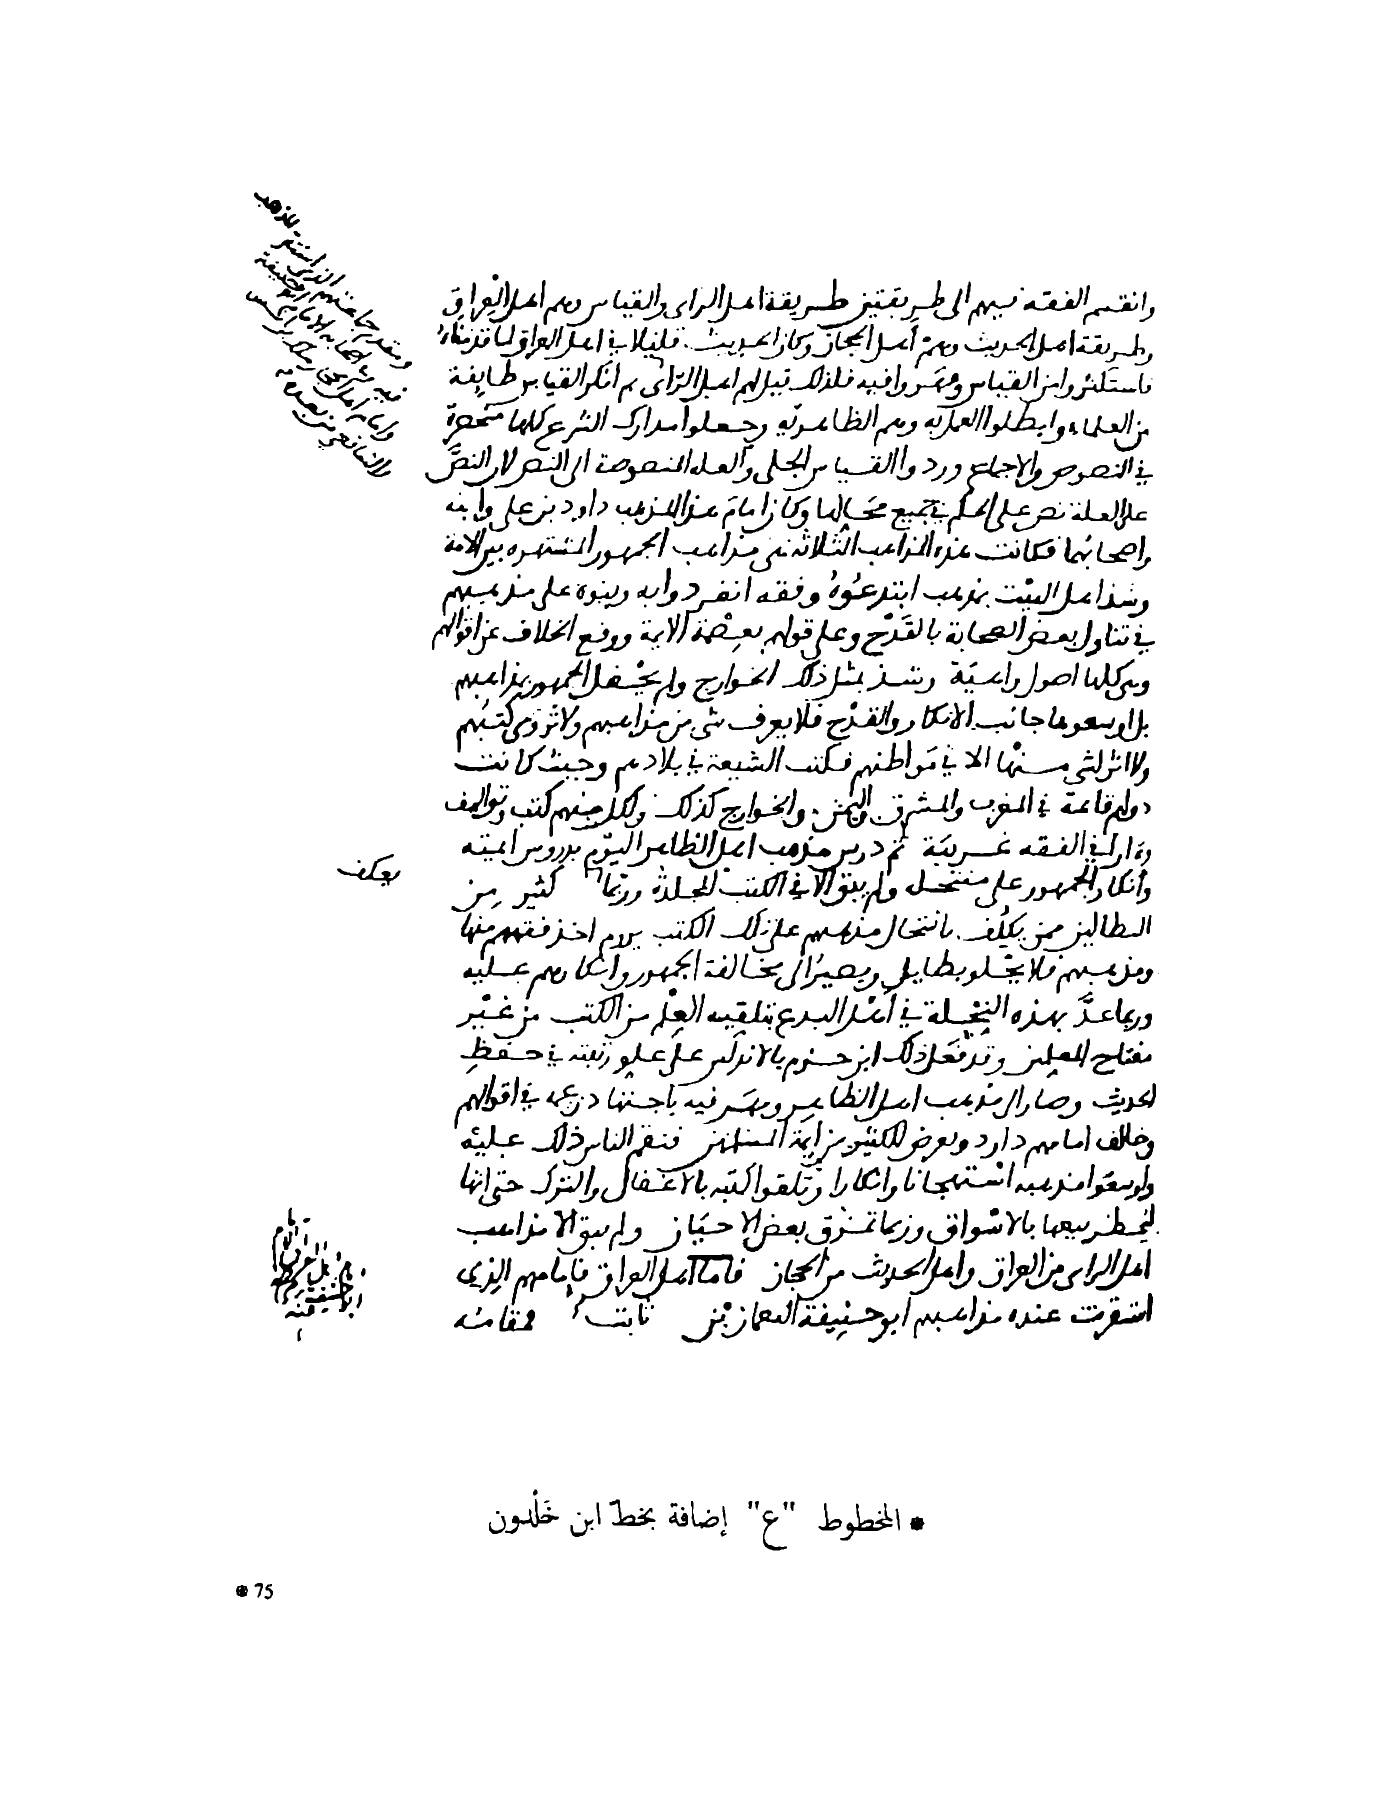 وانقسم الفقه فيهم الى طريقتين طريقة اهل الراى والقياس وهم اهل العراق
وطريقة اهل الحديث وهم أهل الحجاز وكان الحديث قليلا في اهل العراق لما قدمناه
فاستكثروا من القياس ومهروا فيه فلذلك قيل لهم اهل الرأى ثم انكر القياس طايفة
من العلماء وابطلوا العمل به وهم الظاهرية وجعلوا مدارك الشرع كلها منحصرة
في النصوص والاجماع وردوا القياس الجلى والعلة المنصوصة الى النص لان النصَّ
على العلة نص على الحكم في جميع محالها وكان امام هذا المذهب داود بن على وابنه
واصحابهما فكانت هذه المذاهب الثلاثة هى مذاهب الجمهور المشتهره بين الامة
وشذ اهل البيت بمذهب ابتدعوهُ وفقه انفردوا به وبنوه على مذهبهم
في تناول بعض الصحابة بالقَدْح وعلى قولهم بعِصْمة الايمة ورفع الخلاف عن اقوالهم
وهى كلها اصول واهية وشذ بمثل ذلك الخوارج ولم يحْفل الجمهور بمذاهبهم
بل اوسعوها جانب الانكار والقدْح فلا يعرف شى من مذاهبهم ولا تروى كتبهم
ولا اثر لشى منها الا في مَواطنهم فكتب الشيعة في بلادهم وحيث كانت
دولهم قايمة في المغرب والمشرق واليمن والخوارج كذلك ولكل منهم كتب وتواليف
وءارا في الفقه غريبَة ثم درس مذهب اهل الظاهر اليوم بدروس ايمته
وأنكار الجمهور على منتحله ولم يبق الا في الكتب المجلدة وربما كثير من
يعكف
الطالبين ممن يكلف بانتحال مذهبهم على تلك الكتب يروم اخذ فقههم منها
ومذهبهم فلا يخْلو بطايل ويصير الى مخالفة الجمهور وانكارهم عليه
وربما عدَّ بهذه النِحْلة في أهْل البدع بتلقيه العِلْم من الكتب من غيْر
مفتاح المعلمين وقد فعَل ذلك ابن حزم بالاندلس على علو رتبته في حفظ
الحديث وصار الى مذهب اهل الظاهر ومهر فيه باجتهاد زعمه في اقوالهم
وخالف امامهم داود وتعرض للكثير من ايمة المسلمين فنقم الناس ذلك عليْه
واوسعَوا مذهبه استهجانا وانكارا وتلقوا كتبه بالاغفال والترك حتى انها
ليُحظر بيعها بالاسْواق وربما تمزق بعض الاحيَان ولم يبق الا مذاهب
اهل الراى من العراق واهل الحديث من الحجاز فاما اهل العراق فامامهم الذى
استقرت عنده مذاهبهم ابو حنيفة النعمان بْن ثابت فمقامه
ومقدم جماعتهم الذى استقر المذهب
فيه وفى اصحابه الامام ابو حنيفة
وامام اهل الحجاز مالك بن انس
والشافعى من بعده
* المخطوط "ع" إضافة بخطّ ابن خَلْدون
* 75